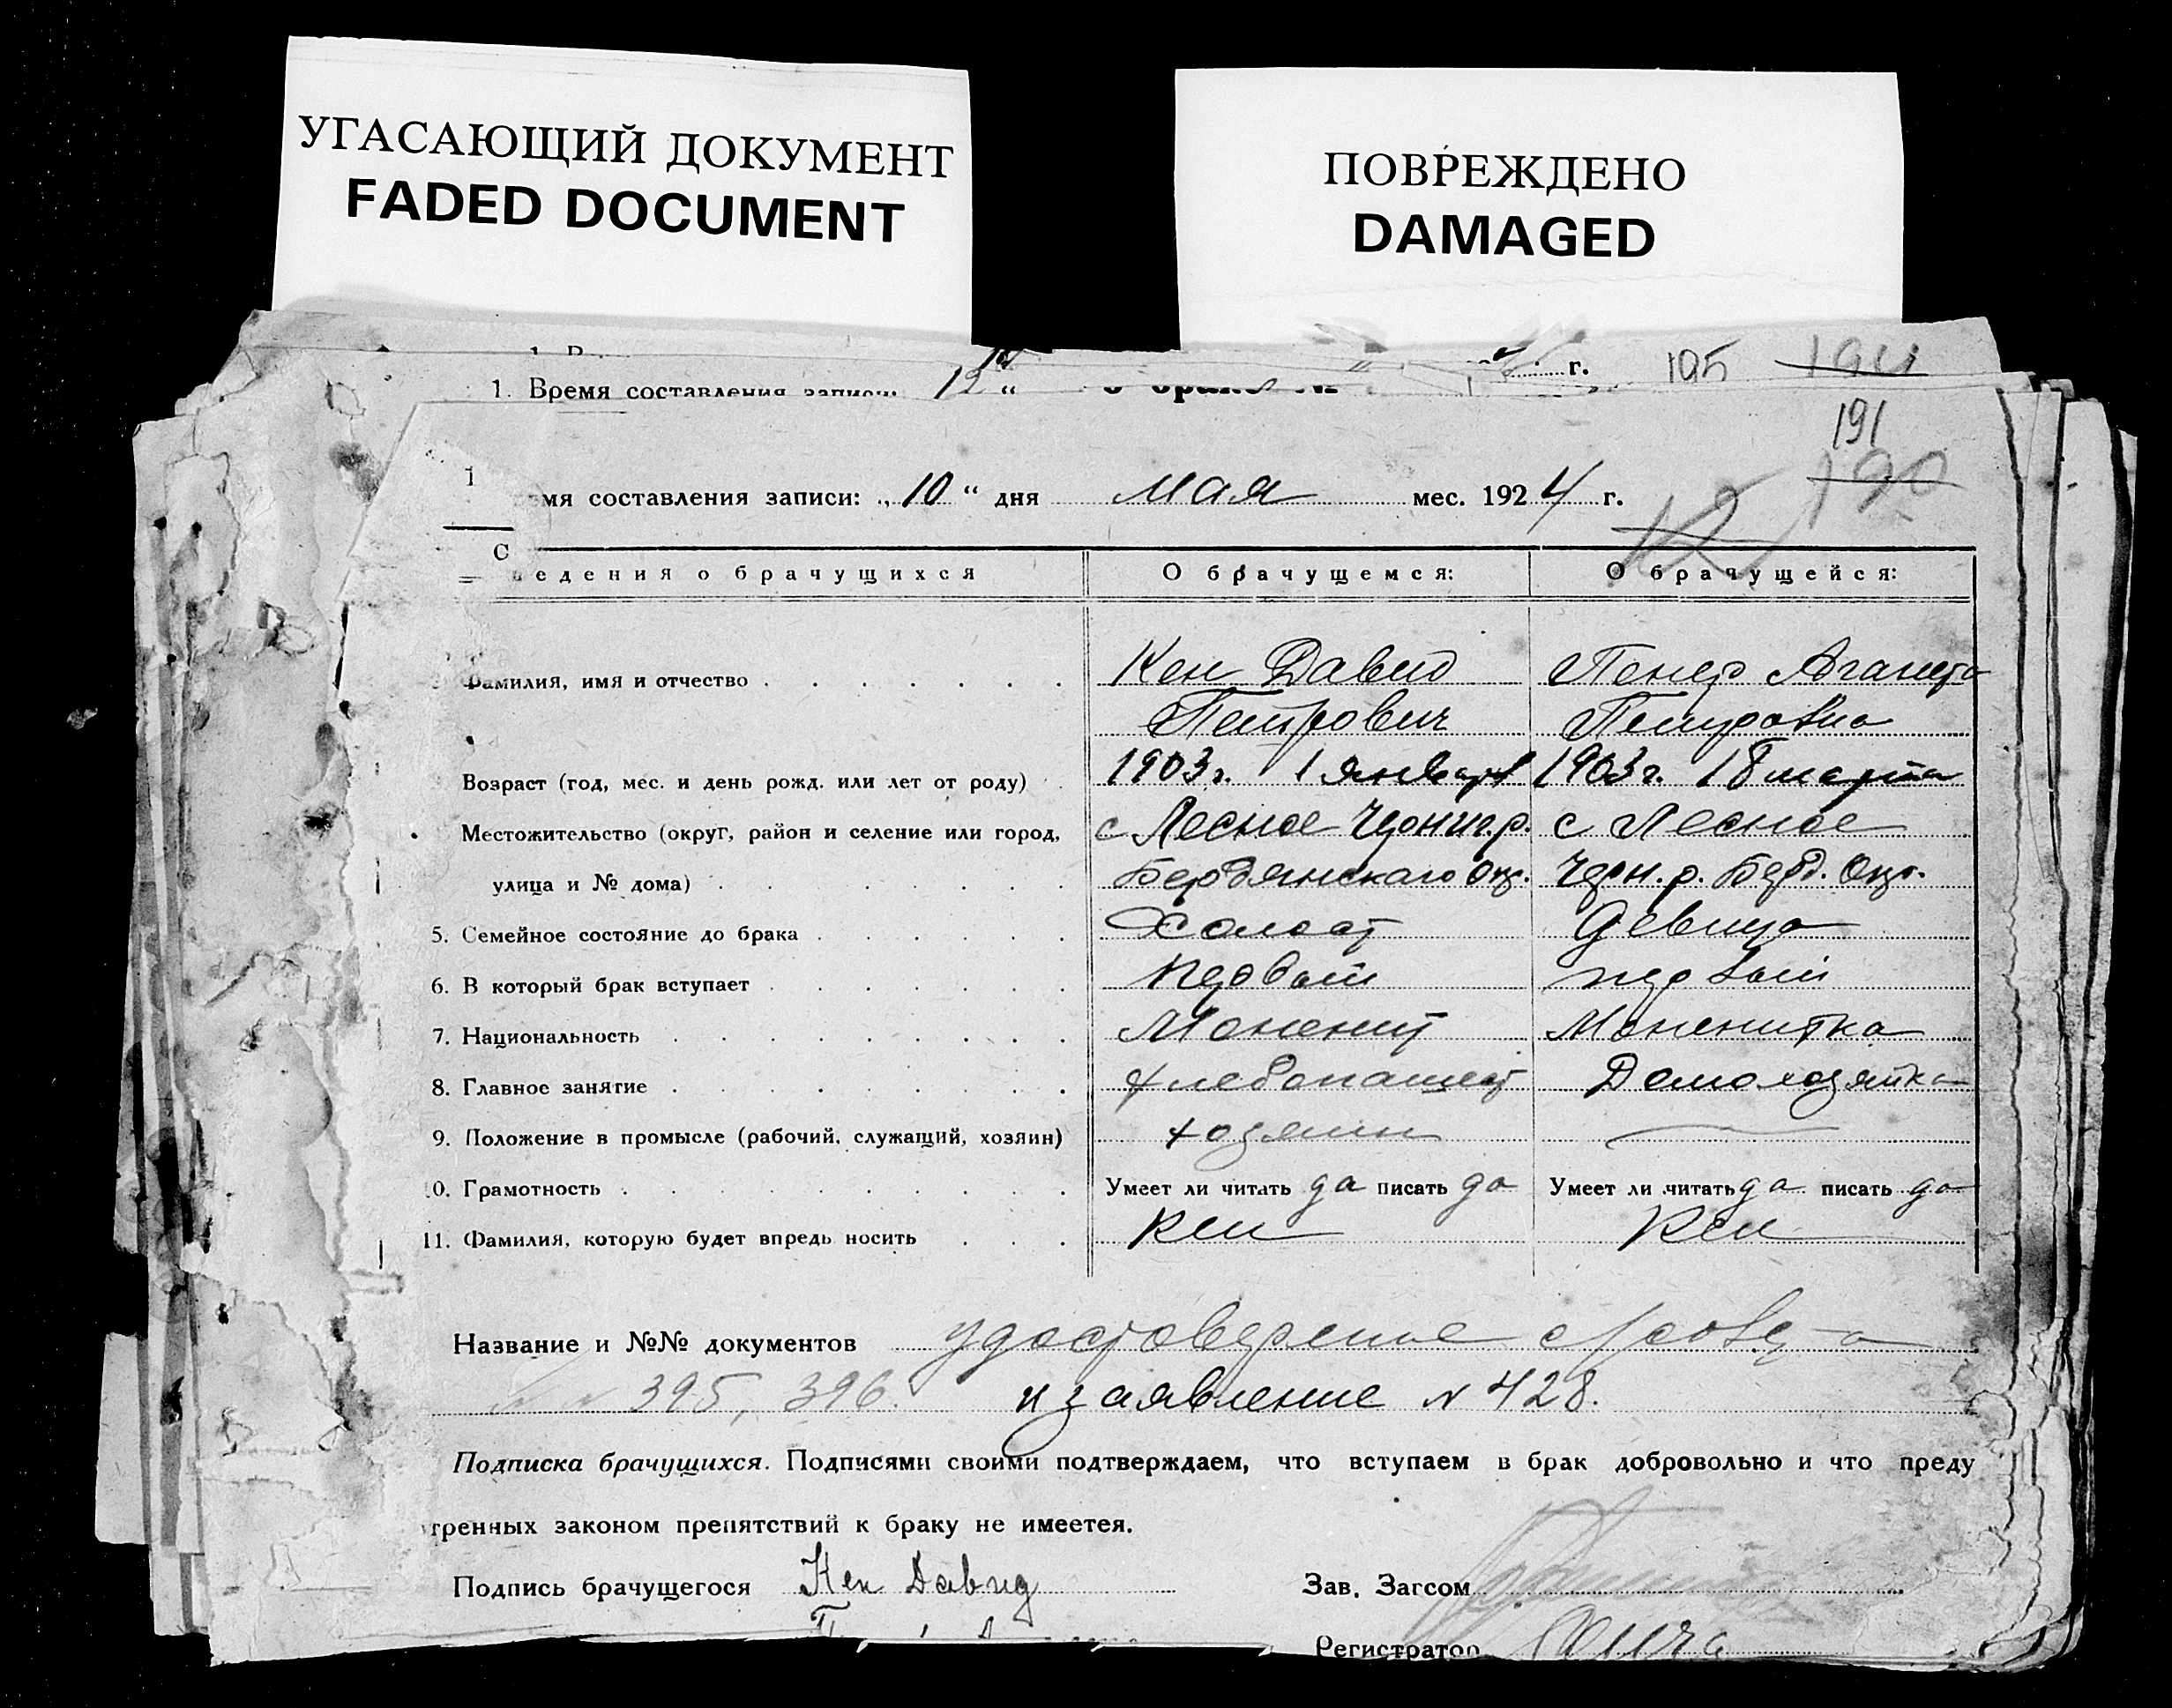 УГАСАЮЩИЙ ДОКУМЕНТ
FADED DOCUMENT
ПОВРЕЖДЕНО
DAMAGED
г. 195 194
1. Время составления записи: 12 "
191
190
мя составления записи: „ 10 “ дня мая мес. 1924 г.
12
едения о брачущихся О брачущемся: О брачущейся:
Фамилия, имя и отчество Кен Давид Пенер Аганета
Петрович Петровна
Возраст (год, мес. и день рожд. или лет от роду) 1903 г. 1 января 1903 г. 18 марта
Местожительство (округ, район и селение или город, с Лесное Черниг. р. с Лесное
улица и № дома) Бердянскаго Окр. Черн. р. Берд. Окр.
5. Семейное состояние до брака Холост Девица
6. В который брак вступает Первый первый
7. Национальность Мененит Мененитка
8. Главное занятие Хлебопашест Домохозяйка
9. Положение в промысле (рабочий, служащий, хозяин) хозяин
0. Грамотность Умеет ли читать да писать да Умеет ли читать да писать да
11. Фамилия, которую будет впредь носить Кен Кен
Название и №№ документов удостоверение
395, 396. и заявление № 428.
Подписка брачущихся. Подписями своими подтверждаем, что вступаем в брак добровольно и что преду
тренных законом препятствий к браку не имеетея.
Подпись брачущегося Кен Давид Зав. Загсом
Регистратор